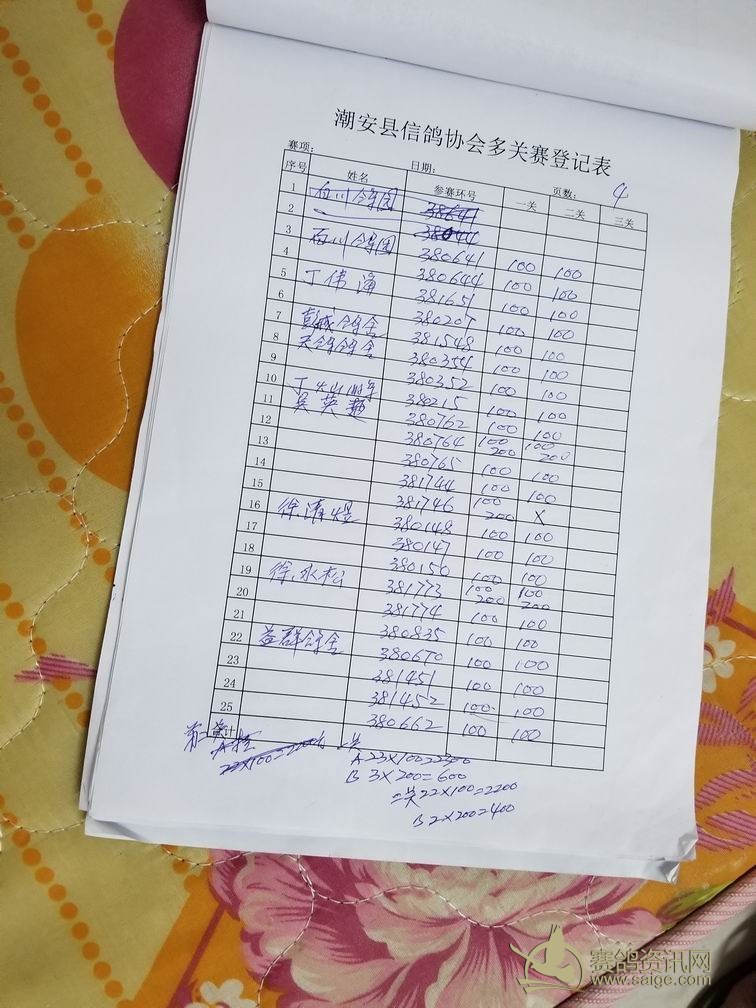 潮安县信鸽协会多关赛登记表
赛项: 日期: 页数: 4
序号 姓名 参赛环号 一关 二关 三关
1 石川鸽园 38641
2 38044
3 石川鸽园 380641 100 100
4 380644 100 100
5 丁伟 381651 100 100
6 380207 100 100
7 彭城鸽舍 381548 100 100
8 天鸽鸽舍 380354 100 100
9 380352 100 100
10 丁 380215 100 100
11 吴英 380762 100 100
12 380764 100 200 100 200
13 380765 100 100
14 381744 100 100
15 381746 100 200 X
16 徐清煜 380148 100 100
17 380147 100 100
18 380150 100 200 100 200
19 徐永松 381773 100 100
20 381774 100 100
21 380835 100 100
22 益群鸽舍 380670 100 100
23 381451 100 100
24 381452 100 100
25 380662 100 100
计
A 23×100=2300
B 3×200=600
二关 22×100=2200
B 2×200=400
赛鸽资讯网
www.saige.com